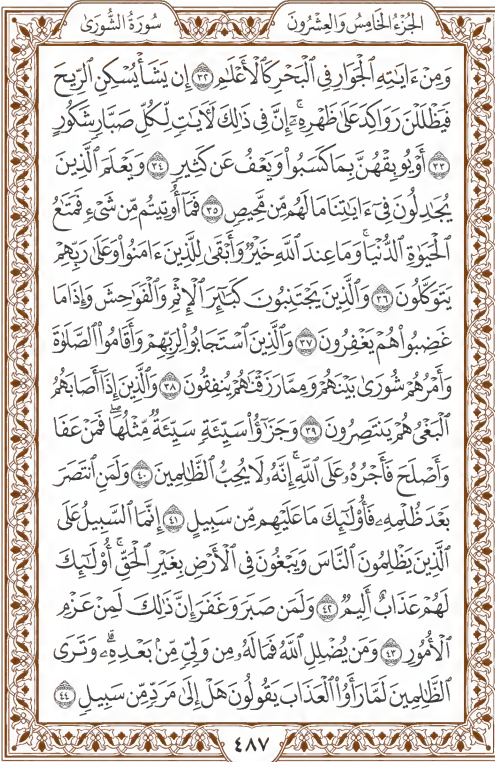 الجُزْءُ الخَامِسُ وَالعِشْرُونَ
سُورَةُ الشُّورَىٰ
وَمِنْ ءَايَـٰتِهِ ٱلْجَوَارِ فِى ٱلْبَحْرِ كَٱلْأَعْلَـٰمِ ٣٢ إِن يَشَأْ يُسْكِنِ ٱلرِّيحَ
فَيَظْلَلْنَ رَوَاكِدَ عَلَىٰ ظَهْرِهِۦٓ ۚ إِنَّ فِى ذَٰلِكَ لَـَٔايَـٰتٍ لِّكُلِّ صَبَّارٍ شَكُورٍ
٣٣ أَوْ يُوبِقْهُنَّ بِمَا كَسَبُوا۟ وَيَعْفُ عَن كَثِيرٍ ٣٤ وَيَعْلَمَ ٱلَّذِينَ
يُجَـٰدِلُونَ فِىٓ ءَايَـٰتِنَا مَا لَهُم مِّن مَّحِيصٍ ٣٥ فَمَآ أُوتِيتُم مِّن شَىْءٍ فَمَتَـٰعُ
ٱلْحَيَوٰةِ ٱلدُّنْيَا ۖ وَمَا عِندَ ٱللَّهِ خَيْرٌ وَأَبْقَىٰ لِلَّذِينَ ءَامَنُوا۟ وَعَلَىٰ رَبِّهِمْ
يَتَوَكَّلُونَ ٣٦ وَٱلَّذِينَ يَجْتَنِبُونَ كَبَـٰٓئِرَ ٱلْإِثْمِ وَٱلْفَوَٰحِشَ وَإِذَا مَا
غَضِبُوا۟ هُمْ يَغْفِرُونَ ٣٧ وَٱلَّذِينَ ٱسْتَجَابُوا۟ لِرَبِّهِمْ وَأَقَامُوا۟ ٱلصَّلَوٰةَ
وَأَمْرُهُمْ شُورَىٰ بَيْنَهُمْ وَمِمَّا رَزَقْنَـٰهُمْ يُنفِقُونَ ٣٨ وَٱلَّذِينَ إِذَآ أَصَابَهُمُ
ٱلْبَغْىُ هُمْ يَنتَصِرُونَ ٣٩ وَجَزَٰٓؤُا۟ سَيِّئَةٍ سَيِّئَةٌ مِّثْلُهَا ۖ فَمَنْ عَفَا
وَأَصْلَحَ فَأَجْرُهُۥ عَلَى ٱللَّهِ ۚ إِنَّهُۥ لَا يُحِبُّ ٱلظَّـٰلِمِينَ ٤٠ وَلَمَنِ ٱنتَصَرَ
بَعْدَ ظُلْمِهِۦ فَأُو۟لَـٰٓئِكَ مَا عَلَيْهِم مِّن سَبِيلٍ ٤١ إِنَّمَا ٱلسَّبِيلُ عَلَى
ٱلَّذِينَ يَظْلِمُونَ ٱلنَّاسَ وَيَبْغُونَ فِى ٱلْأَرْضِ بِغَيْرِ ٱلْحَقِّ ۚ أُو۟لَـٰٓئِكَ
لَهُمْ عَذَابٌ أَلِيمٌ ٤٢ وَلَمَن صَبَرَ وَغَفَرَ إِنَّ ذَٰلِكَ لَمِنْ عَزْمِ
ٱلْأُمُورِ ٤٣ وَمَن يُضْلِلِ ٱللَّهُ فَمَا لَهُۥ مِن وَلِىٍّ مِّنۢ بَعْدِهِۦ ۗ وَتَرَى
ٱلظَّـٰلِمِينَ لَمَّا رَأَوُا۟ ٱلْعَذَابَ يَقُولُونَ هَلْ إِلَىٰ مَرَدٍّ مِّن سَبِيلٍ ٤٤
٤٨٧